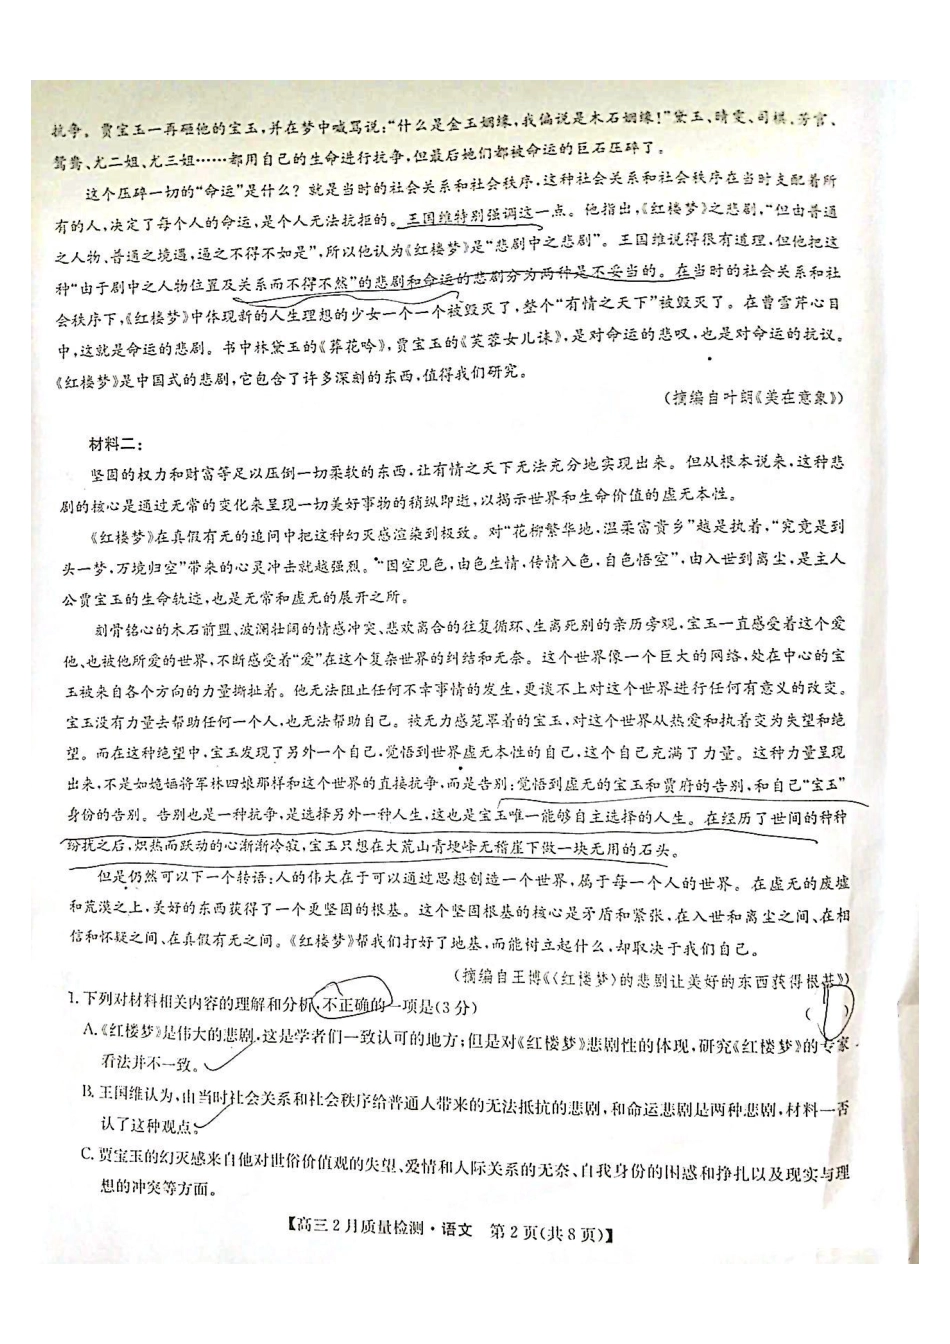 抗争。贾宝玉一再砸他的宝玉,并在梦中喊骂说:“什么是金玉姻缘,我偏说是木石姻缘!”黛玉、晴雯、司棋、芳官、
鸳鸯、尤二姐、尤三姐……都用自己的生命进行抗争,但最后她们都被命运的巨石压碎了。
这个压碎一切的“命运”是什么?就是当时的社会关系和社会秩序,这种社会关系和社会秩序在当时支配着所
有的人,决定了每个人的命运,是个人无法抗拒的。王国维特别强调这一点。他指出,《红楼梦》之悲剧,“但由普通
之人物、普通之境遇,逼之不得不如是”,所以他认为《红楼梦》是“悲剧中之悲剧”。王国维说得很有道理,但他把这
种“由于剧中之人物位置及关系而不得不然”的悲剧和命运的悲剧分为两种是不妥当的。在当时的社会关系和社
会秩序下,《红楼梦》中体现新的人生理想的少女一个一个被毁灭了,整个“有情之天下”被毁灭了。在曹雪芹心目
中,这就是命运的悲剧。书中林黛玉的《葬花吟》,贾宝玉的《芙蓉女儿诔》,是对命运的悲叹,也是对命运的抗议。
《红楼梦》是中国式的悲剧,它包含了许多深刻的东西,值得我们研究。
(摘编自叶朗《美在意象》)
材料二:
坚固的权力和财富等足以压倒一切柔软的东西,让有情之天下无法充分地实现出来。但从根本说来,这种悲
剧的核心是通过无常的变化来呈现一切美好事物的稍纵即逝,以揭示世界和生命价值的虚无本性。
《红楼梦》在真假有无的追问中把这种幻灭感渲染到极致。对“花柳繁华地,温柔富贵乡”越是执着,“究竟是到
头一梦,万境归空”带来的心灵冲击就越强烈。“因空见色,由色生情,传情入色,自色悟空”,由入世到离尘,是主人
公贾宝玉的生命轨迹,也是无常和虚无的展开之所。
刻骨铭心的木石前盟、波澜壮阔的情感冲突、悲欢离合的往复循环、生离死别的亲历旁观,宝玉一直感受着这个爱
他、也被他所爱的世界,不断感受着“爱”在这个复杂世界的纠结和无奈。这个世界像一个巨大的网络,处在中心的宝
玉被来自各个方向的力量撕扯着。他无法阻止任何不幸事情的发生,更谈不上对这个世界进行任何有意义的改变。
宝玉没有力量去帮助任何一个人,也无法帮助自己。被无力感笼罩着的宝玉,对这个世界从热爱和执着变为失望和绝
望。而在这种绝望中,宝玉发现了另外一个自己,觉悟到世界虚无本性的自己,这个自己充满了力量。这种力量呈现
出来,不是如姽婳将军林四娘那样和这个世界的直接抗争,而是告别:觉悟到虚无的宝玉和贾府的告别,和自己“宝玉”
身份的告别。告别也是一种抗争,是选择另外一种人生,这也是宝玉唯一能够自主选择的人生。在经历了世间的种种
纷扰之后,炽热而跃动的心渐渐冷寂,宝玉只想在大荒山青埂峰无稽崖下做一块无用的石头。
但是仍然可以下一个转语:人的伟大在于可以通过思想创造一个世界,属于每一个人的世界。在虚无的废墟
和荒漠之上,美好的东西获得了一个更坚固的根基。这个坚固根基的核心是矛盾和紧张,在入世和离尘之间、在相
信和怀疑之间、在真假有无之间。《红楼梦》帮我们打好了地基,而能树立起什么,却取决于我们自己。
(摘编自王博《〈红楼梦〉的悲剧让美好的东西获得根基》)
1.下列对材料相关内容的理解和分析,不正确的一项是(3分) ( D )
A.《红楼梦》是伟大的悲剧,这是学者们一致认可的地方;但是对《红楼梦》悲剧性的体现,研究《红楼梦》的专家
看法并不一致。
B.王国维认为,由当时社会关系和社会秩序给普通人带来的无法抵抗的悲剧,和命运悲剧是两种悲剧,材料一否
认了这种观点。
C.贾宝玉的幻灭感来自他对世俗价值观的失望、爱情和人际关系的无奈、自我身份的困惑和挣扎以及现实与理
想的冲突等方面。
【高三2月质量检测·语文 第2页(共8页)】